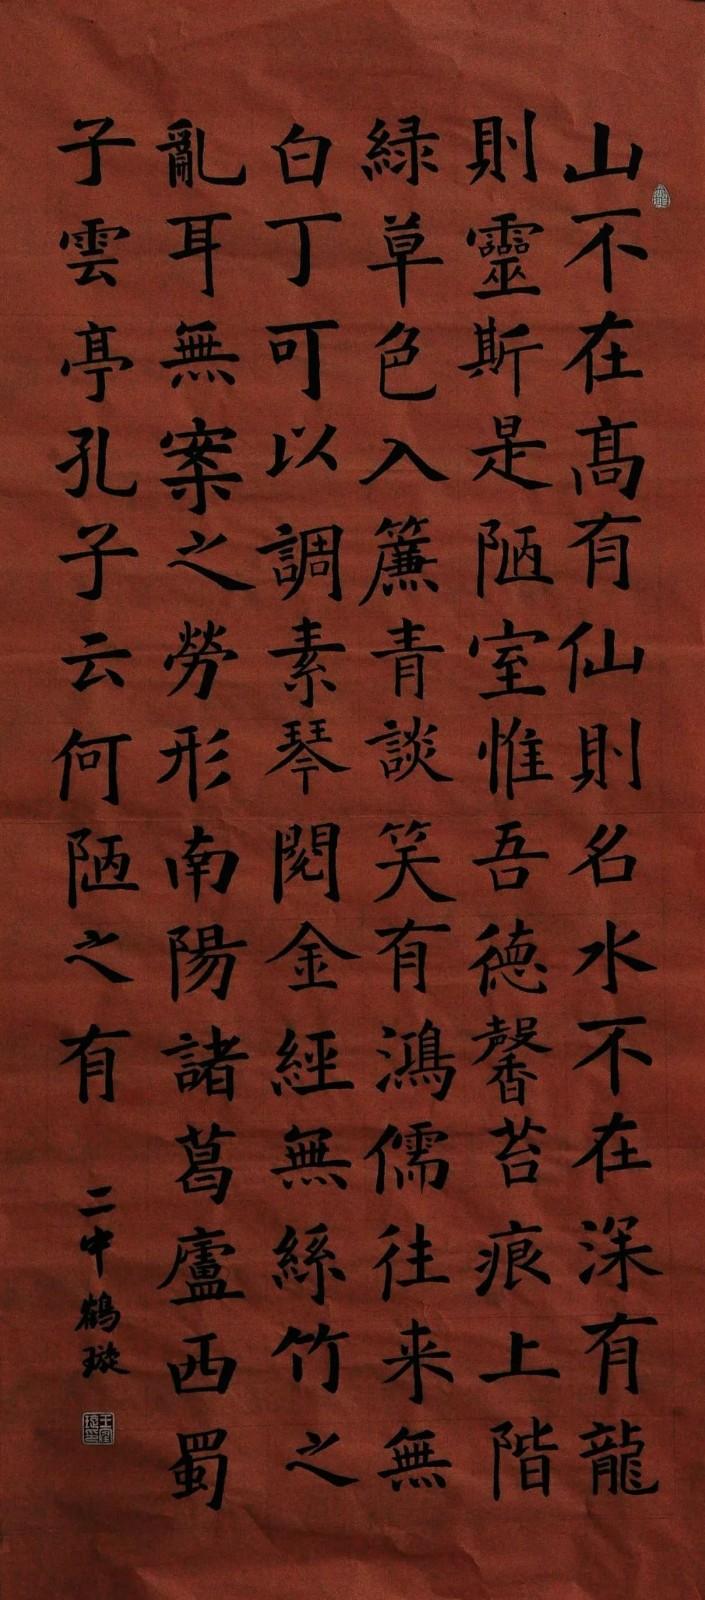 山不在髙有仙則名水不在深有龍
則靈斯是陋室惟吾德馨苔痕上階
緑草色入簾青談笑有鴻儒往来無
白丁可以調素琴閱金經無絲竹之
亂耳無案之勞形南陽諸葛廬西蜀
子雲亭孔子云何陋之有
二中鶴璇